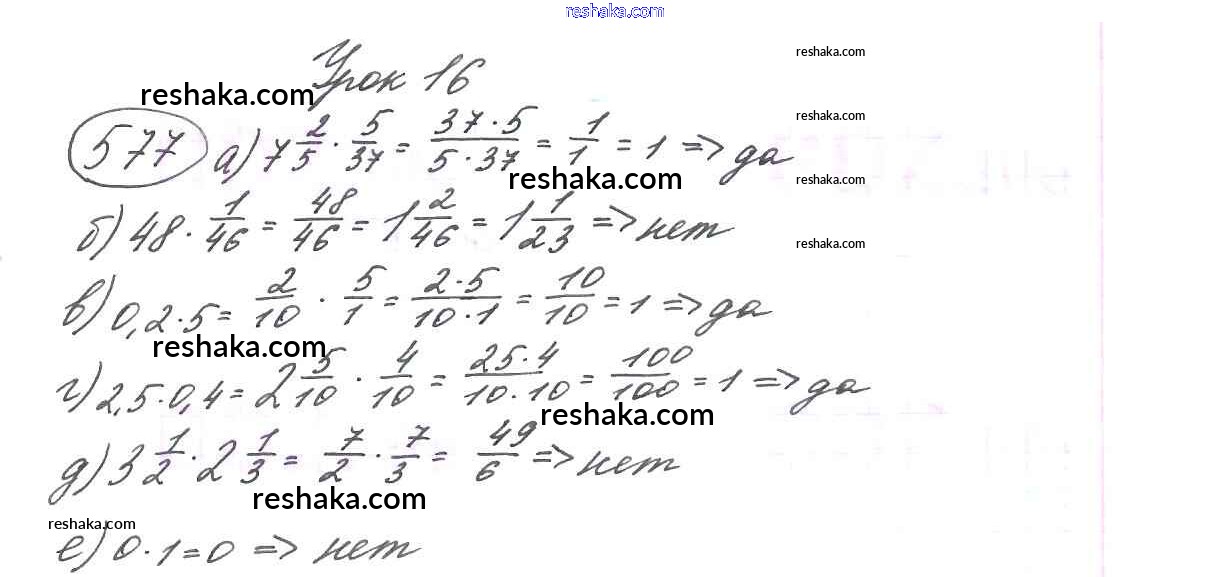 reshaka.com
Урок 16
reshaka.com
reshaka.com
577 а) 7 2/5 · 5/37 = 37·5/5·37 = 1/1 = 1 => да
reshaka.com
reshaka.com
reshaka.com
б) 48 · 1/46 = 48/46 = 1 2/46 = 1 1/23 => нет
reshaka.com
в) 0,2·5 = 2/10 · 5/1 = 2·5/10·1 = 10/10 = 1 => да
reshaka.com
г) 2,5·0,4 = 2 5/10 · 4/10 = 25·4/10·10 = 100/100 = 1 => да
reshaka.com
д) 3 1/2 · 2 1/3 = 7/2 · 7/3 = 49/6 => нет
reshaka.com
reshaka.com
е) 0·1=0 => нет